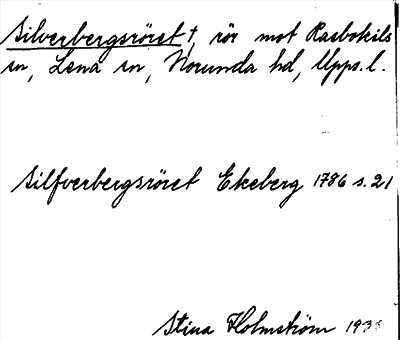 Silverbergsröret †, rör mot Rasbokils
sn, Lena sn, Norunda hd, Upps. l.
Silfverbergsröret Ekeberg 1786 s. 21
Stina Holmström